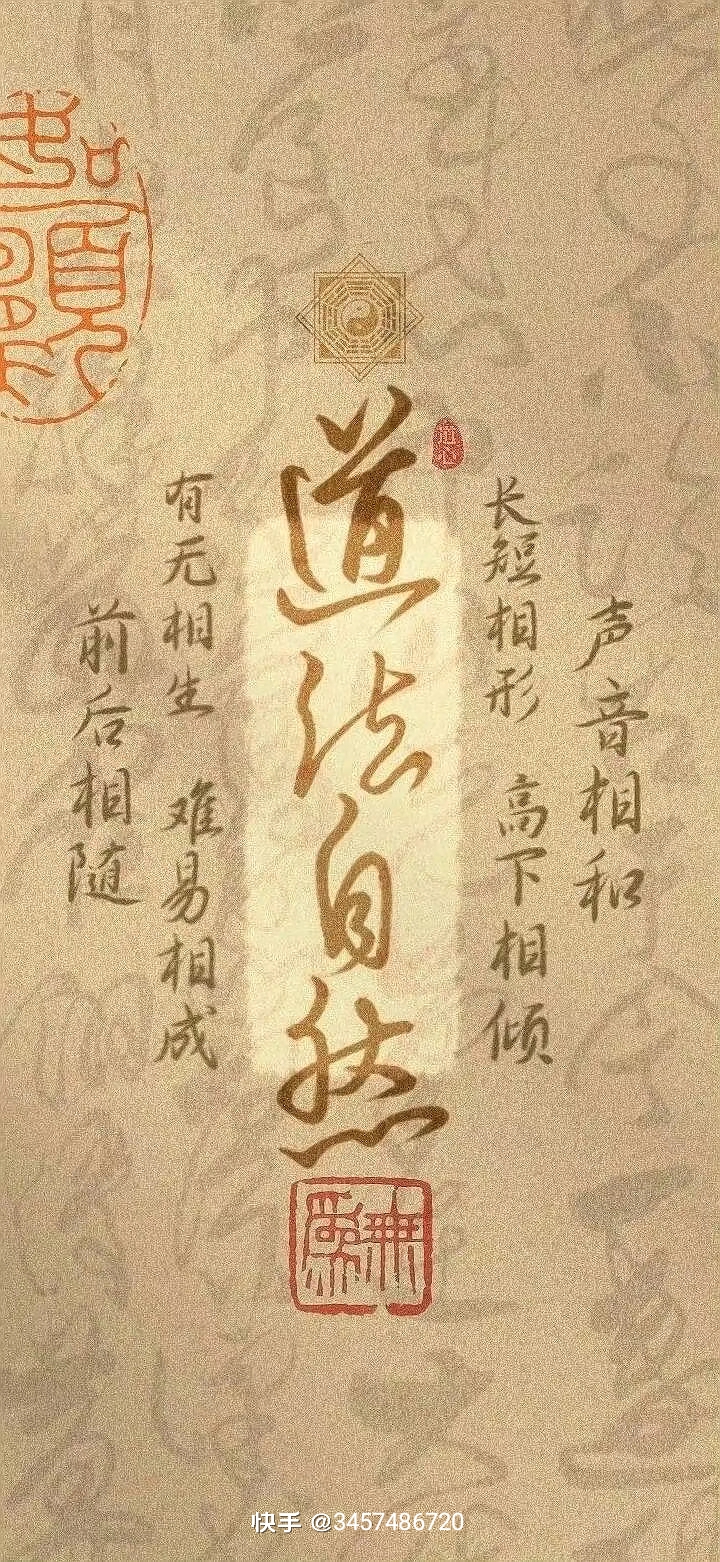 道法自然
有无相生 难易相成
长短相形 高下相倾
声音相和
前后相随
無為
快手 @3457486720